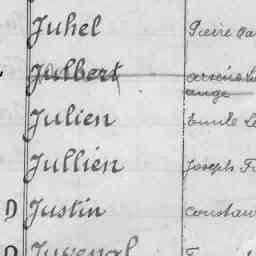 Juhel Pierre
Julbert arsène
ange
Julien Emile
Jullien Joseph
D Justin constan
D Juvenal